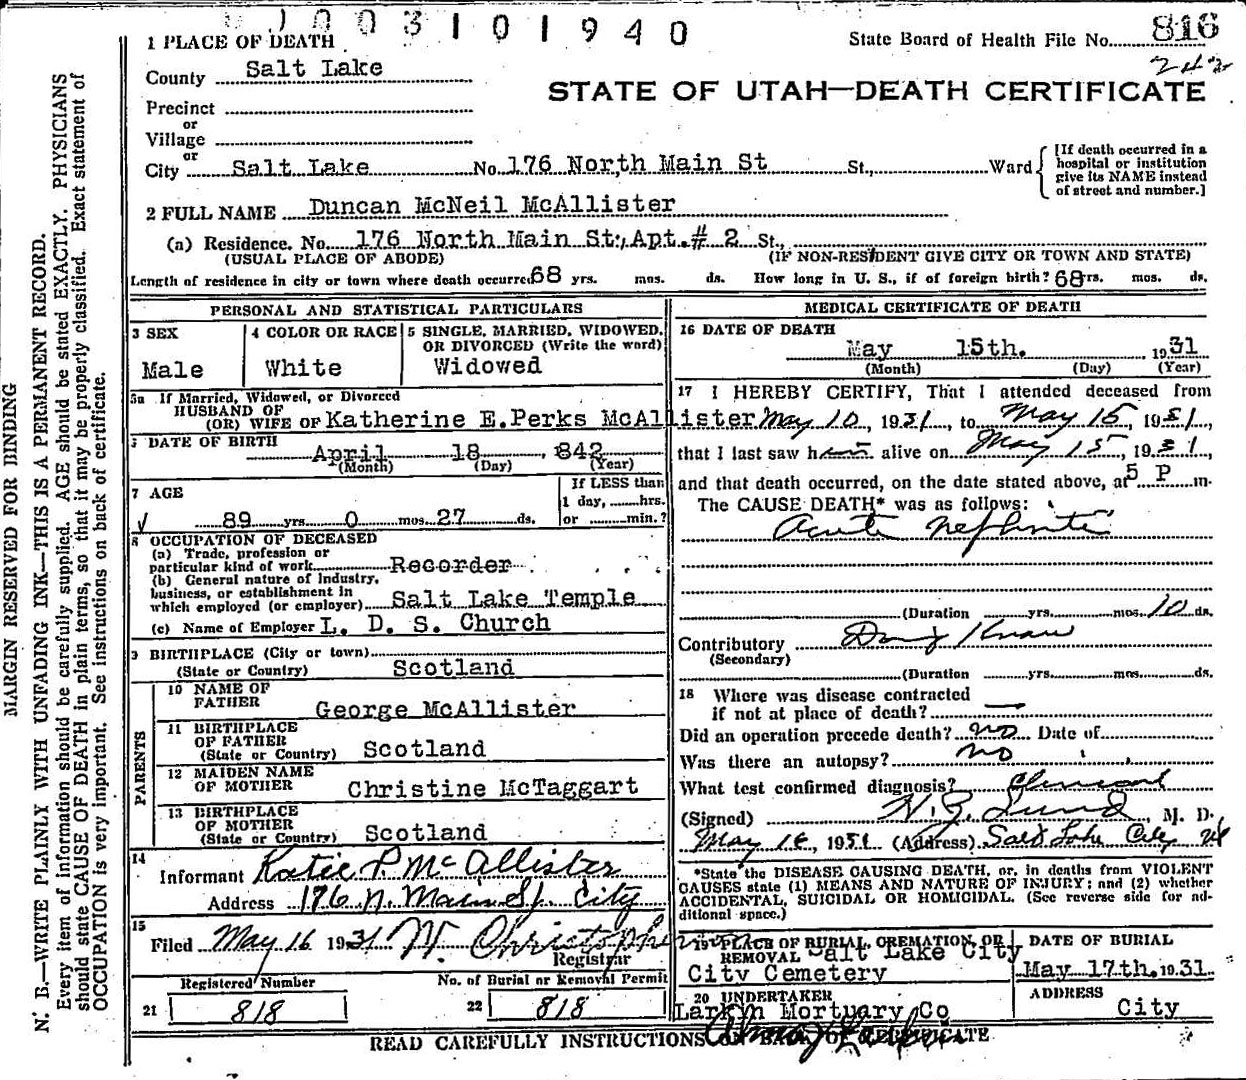 003101940
1 PLACE OF DEATH
State Board of Health File No. 816
County Salt Lake
242
STATE OF UTAH—DEATH CERTIFICATE
Precinct
or
Village
or
City Salt Lake No. 176 North Main St St., Ward
[If death occurred in a
hospital or institution
give its NAME instead
of street and number.]
2 FULL NAME Duncan McNeil McAllister
(a) Residence. No. 176 North Main St., Apt. # 2 St.,
(USUAL PLACE OF ABODE) (IF NON-RESIDENT GIVE CITY OR TOWN AND STATE)
Length of residence in city or town where death occurred 68 yrs. mos. ds. How long in U. S., if of foreign birth? 68 yrs. mos. ds.
PERSONAL AND STATISTICAL PARTICULARS
3 SEX
Male
4 COLOR OR RACE
White
5 SINGLE, MARRIED, WIDOWED,
OR DIVORCED (Write the word)
Widowed
5a If Married, Widowed, or Divorced
HUSBAND OF
(OR) WIFE OF Katherine E. Perks McAllister
DATE OF BIRTH
April 18, 1842
(Month) (Day) (Year)
7 AGE
89 yrs. 0 mos. 27 ds.
If LESS than
1 day, hrs.
or min.?
8 OCCUPATION OF DECEASED
(a) Trade, profession or
particular kind of work Recorder
(b) General nature of industry,
business, or establishment in
which employed (or employer) Salt Lake Temple
(c) Name of Employer L. D. S. Church
9 BIRTHPLACE (City or town)
(State or Country) Scotland
PARENTS
10 NAME OF
FATHER George McAllister
11 BIRTHPLACE
OF FATHER
(State or Country) Scotland
12 MAIDEN NAME
OF MOTHER Christine McTaggart
13 BIRTHPLACE
OF MOTHER
(State or Country) Scotland
14
Informant Katie P. McAllister
Address 176 N. Main St. City
15
Filed May 16 1931 W. Christopherson
Registrar
Registered Number
21 818
No. of Burial or Removal Permit
22 818
MEDICAL CERTIFICATE OF DEATH
16 DATE OF DEATH
May 15th. 1931
(Month) (Day) (Year)
17 I HEREBY CERTIFY, That I attended deceased from
May 10, 1931, to May 15, 1931,
that I last saw him alive on May 15, 1931
and that death occurred, on the date stated above, at 5 P m.
The CAUSE DEATH* was as follows:
Acute Nephritis
(Duration yrs. mos. 10 ds.
Contributory
(Secondary)
(Duration yrs. mos. ds.
18 Where was disease contracted
if not at place of death? —
Did an operation precede death? no Date of
Was there an autopsy? no
What test confirmed diagnosis? Clinical
(Signed) H. Z. Lund, M. D.
May 16, 1931 (Address) Salt Lake City Ut
*State the DISEASE CAUSING DEATH, or, in deaths from VIOLENT
CAUSES state (1) MEANS AND NATURE OF INJURY; and (2) whether
ACCIDENTAL, SUICIDAL OR HOMICIDAL. (See reverse side for ad-
ditional space.)
PLACE OF BURIAL, CREMATION, OR
REMOVAL Salt Lake City
City Cemetery
DATE OF BURIAL
May 17th. 1931
20 UNDERTAKER
Larkin Mortuary Co
ADDRESS
City
READ CAREFULLY INSTRUCTIONS ON BACK OF CERTIFICATE
MARGIN RESERVED FOR BINDING
N. B.—WRITE PLAINLY WITH UNFADING INK—THIS IS A PERMANENT RECORD.
Every item of information should be carefully supplied. AGE should be stated EXACTLY. PHYSICIANS
should state CAUSE OF DEATH in plain terms, so that it may be properly classified. Exact statement of
OCCUPATION is very important. See instructions on back of certificate.